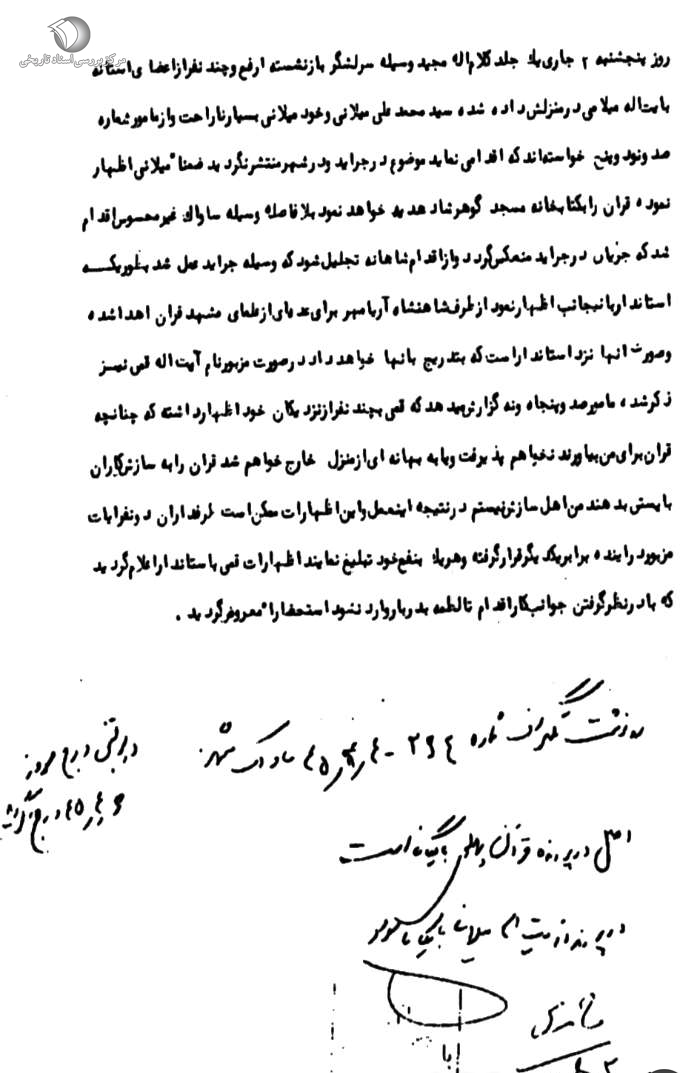 مرکز بررسی اسناد تاریخی
روز پنجشنبه ۲ جاری یك جلد کلام اله مجید وسیله سرلشگر بازنشسته ارفع و چند نفر از اعضای استانه
بایت اله میلامی در منزلش داده شده سید محمد علی میلانی و خود میلانی بسیار ناراحت و از مامور شماره
صد و نود و پنج خواسته اند که اقدامی نماید موضوع در جراید و در شهر منتشر نگردید ضمنا" میلانی اظهار
نموده قران را بکتابخانه مسجد گوهرشاد هدیه خواهد نمود بلافاصله وسیله ساواك غیر محسوس اقدام
شد که جریان در جراید منعکس گردد و از اقدام شاهانه تجلیل شود که وسیله جراید عمل شد بطوریکه
استاندار باینجانب اظهار نمود از طرف شاهنشاه آریامهر برای عده ای از علمای مشهد قران اهدا شده
و صورت انها نزد استاندار است که بتدریج بانها خواهد داد در صورت مزبور نام آیت اله قمی نیز
ذکر شده مامور صد و پنجاه و نه گزارش میدهد که قمی بچند نفر از نزدیکان خود اظهار داشته که چنانچه
قران برای من بیاورند نخواهم پذیرفت و یا به بهانه ای از منزل خارج خواهم شد قران را به سازش کاران
بایستی بدهند من اهل سازش نیستم در نتیجه اینعمل و این اظهارات ممکن است طرفداران دو نفر ایات
مزبور را بنده برابر یکدیگر قرار گرفته و هر یك بنفع خود تبلیغ نمایند اظهارات قمی باستاندار اعلام گردید
که با در نظر گرفتن جوانب کار اقدام تا لطمه بدربار وارد نشود استحضارا" معروض گردید .
رونوشت تلگراف شماره ۲۶۴ - ۴/۴/۴۵ ساواك مشهد
اصل در پرونده قرآن پهلوی بایگانی است
در پرونده آیت اله میلانی بایگانی شود